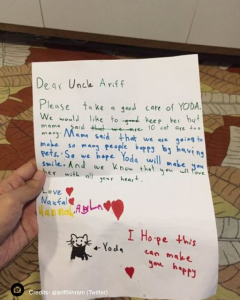 Dear Uncle Ariff
Please take a good care of YODA.
We would like to good keep her but
mama said that we are 10 cat are too
many. Mam said that we are going to
make so many people happy by having
pets. So we hope Yoda will make you
smile. And we know that you will love
her with all your heart.
Love
Naufal
Haaroun, Ayln
←Yoda
I Hope this
can make
you happy
Credits: @ariffikhram (Twitter)